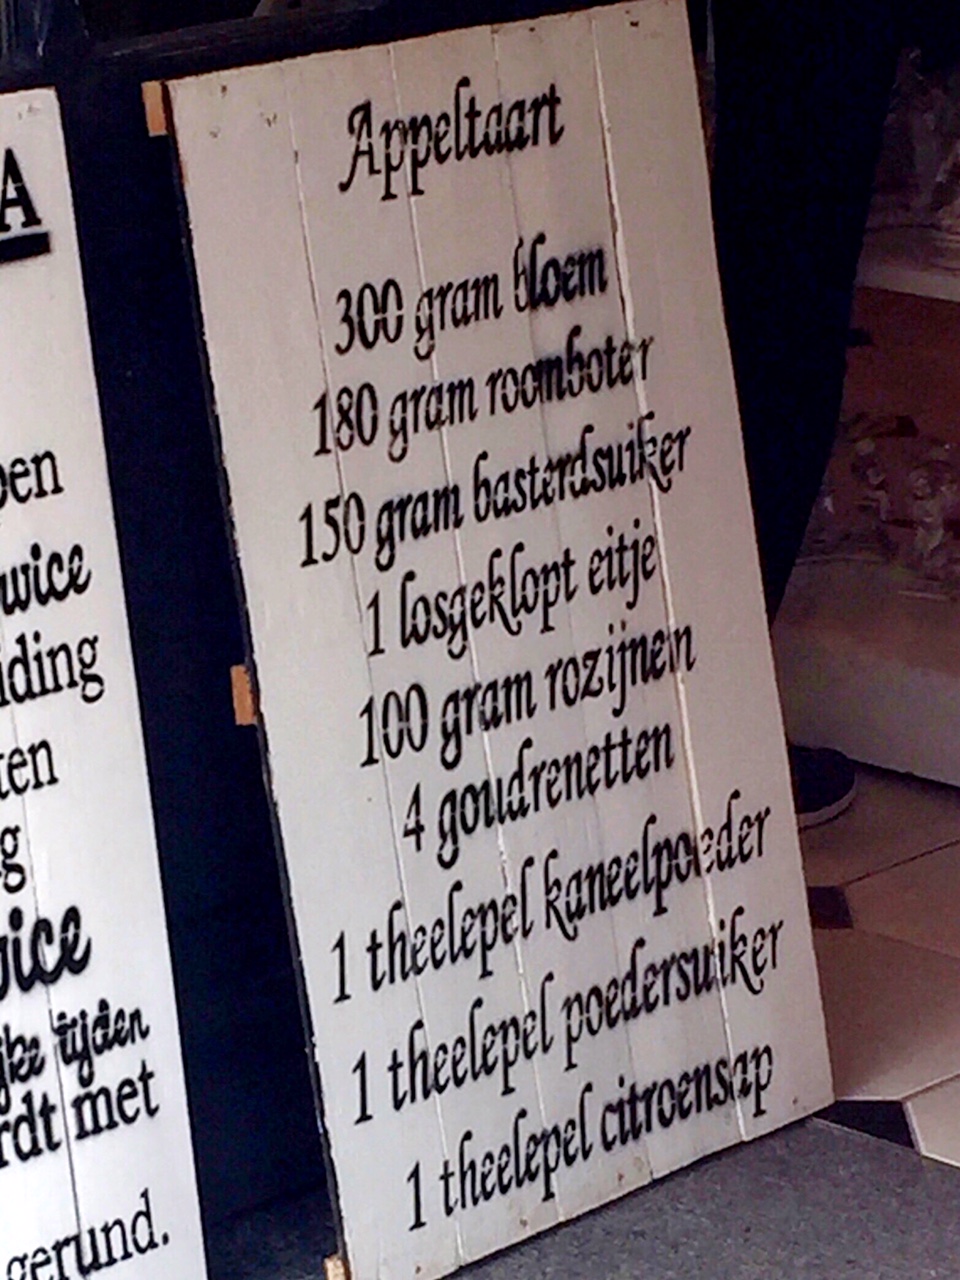 A
wice
met
gerund.
Appeltaart
300 gram bloem
180 gram roomboter
150 gram basterdsuiker
1 losgeklopt eitje
100 gram rozijnen
4 goudrenetten
1 theelepel kaneelpoeder
1 theelepel poedersuiker
1 theelepel citroensap